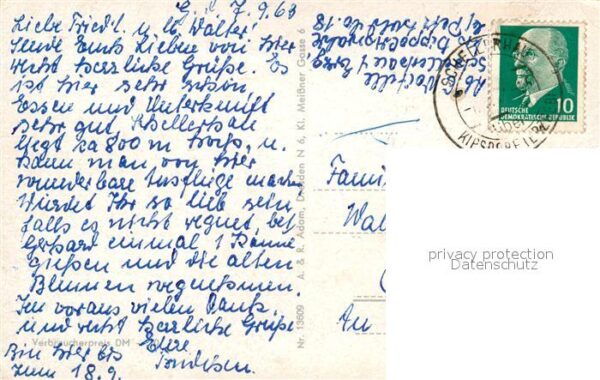 d. 7.9.63
Liebe Friedl. u. lb. Walter!
Sende Euch Lieben von hier
recht herzliche Grüße. Es
ist hier sehr schön,
Essen und Unterkunft
sehr gut. Schellerhau
liegt ca 800 m hoch, u.
kann man von hier
wunderbare Ausflüge machen
Würdet Ihr so lieb sein
falls es nicht regnet, bei
Gerhard einmal 1 Kanne
gießen und die alten
Blumen wegnehmen.
Im voraus vielen Dank,
und recht herzliche Grüße
Eure
Bin hier bis
zum 18.9.
Verbraucherpreis DM
Nr. 13609 A. & R. Adam, Dresden N 6, Kl. Meißner Gasse 6
Schellerhau
Dippoldiswalde
DEUTSCHE
DEMOKRATISCHE REPUBLIK
10
KIPSDORF
Fami
Wal
An
privacy protection
Datenschutz